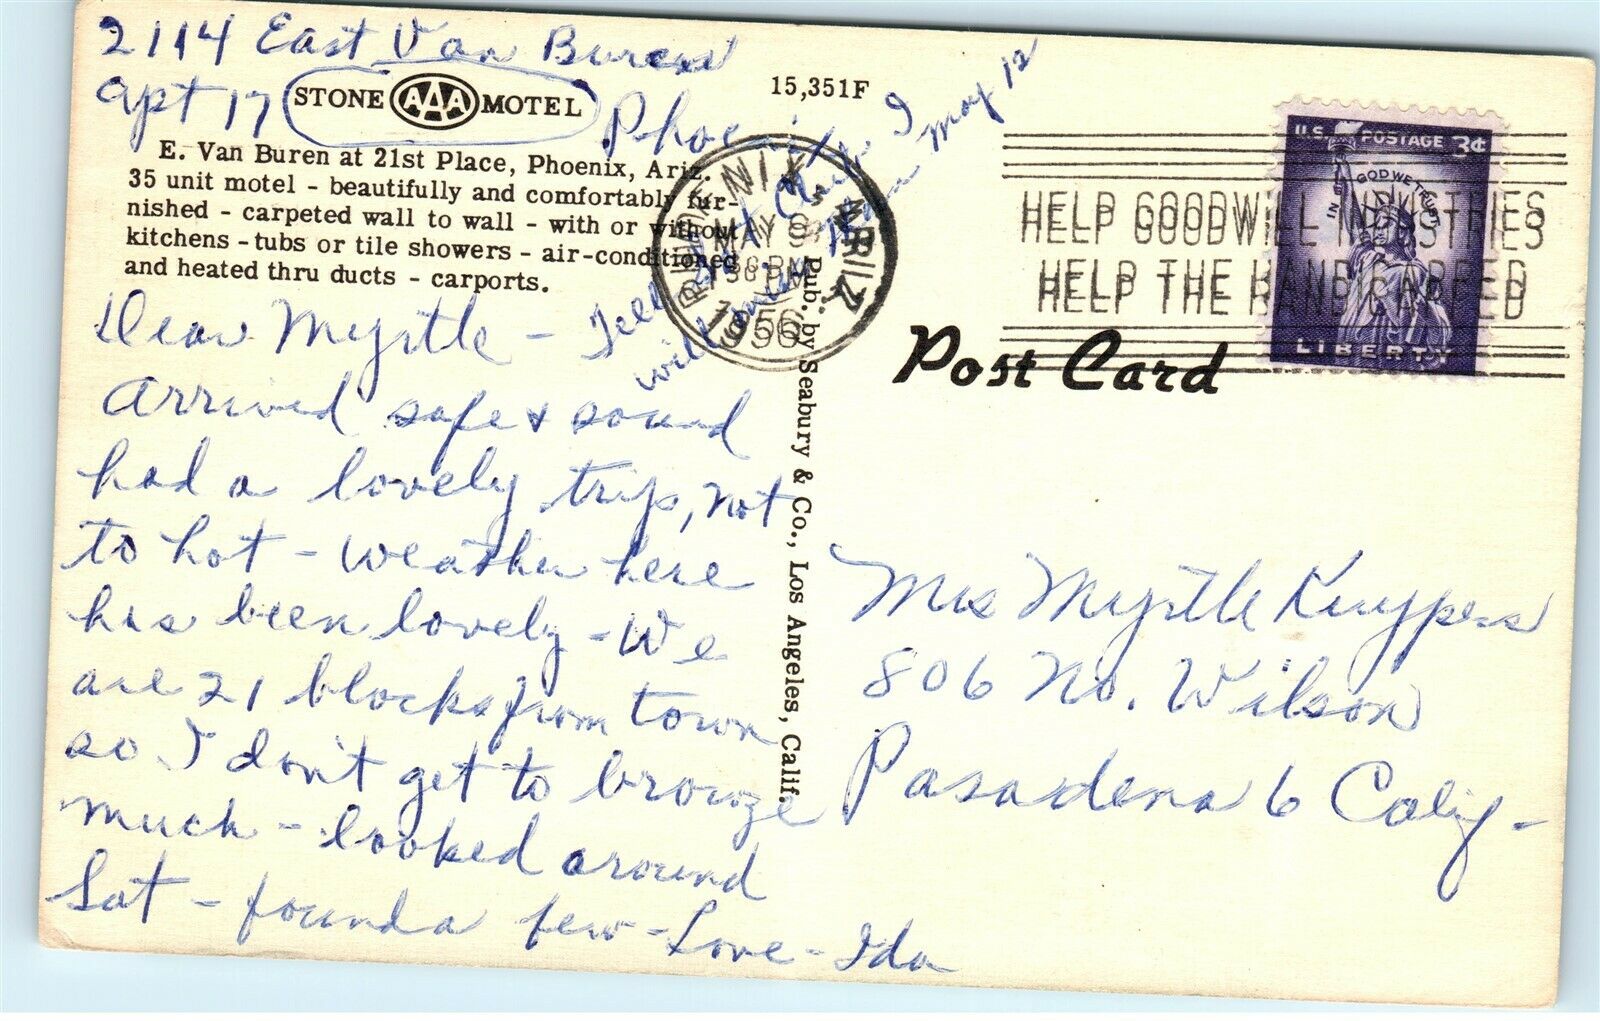 2114 East Van Buren
apt 17
STONE AAA MOTEL
Phoenix
E. Van Buren at 21st Place, Phoenix, Ariz.
35 unit motel - beautifully and comfortably fur-
nished - carpeted wall to wall - with or without
kitchens - tubs or tile showers - air-conditioned
and heated thru ducts - carports.
Dear Myrtle - Tell
will
May 12
Arrived safe & sound
had a lovely trip, not
to hot - weather here
has been lovely - We
are 21 blocks from town
so I don't get to browze
much - looked around
Sat - found a few - Love - Ida
15,351F
Pub. by Seabury & Co., Los Angeles, Calif.
PHOENIX ARIZ.
MAY 9
PM
1956
HELP GOODWILL INDUSTRIES
HELP THE HANDICAPPED
U.S. POSTAGE 3¢
IN GOD WE TRUST
LIBERTY
Post Card
Mrs Myrtle Kuypers
806 No. Wilson
Pasadena 6 Calif-